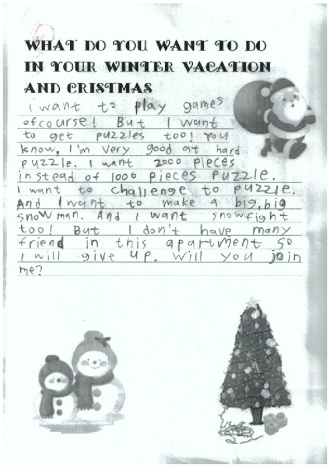 WHAT DO YOU WANT TO DO
IN YOUR WINTER VACATION
AND CRISTMAS
I want to play games
ofcourse! But I want
to get puzzles too! You
know, I'm very good at hard
puzzle. I want 2000 pieces
instead of 1000 pieces puzzle.
I want to challenge to puzzle.
And I want to make a big, big
snow man. And I want snowfight
too! But I don't have many
friend in this apartment so
I will give up. Will you join
me?